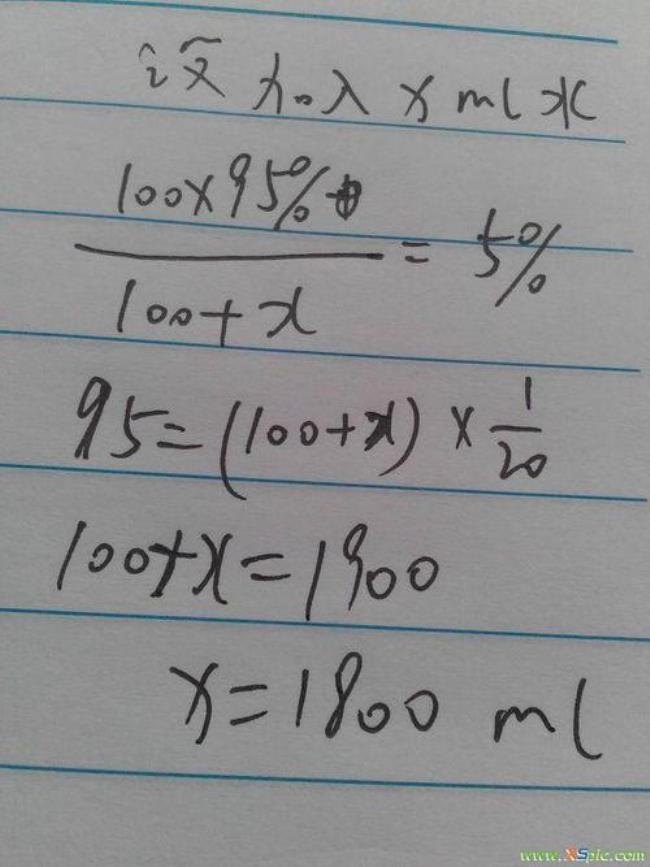 设加入x ml水
100×95%
100+x
= 5%
95=(100+x)×1/20
100+x=1900
x=1800 ml
www.XSpic.com